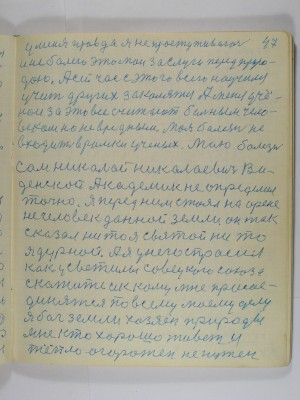 у меня правда я не простуживаюсь 47
и не болею это мои заслуги перед приро-
дою. А сейчас этого всего научился
учит других закалятся А меня учё-
ные за это все считают больным чело-
веком но не вредным. Моя болезнь не
входит в рамки ученых. Мою болезнь
Сам николай николаевич Вве-
денской Академик не определил
точно. Я перед ним стоял на сроке
не человек данной земли он так
сказал ни то я святой ни то
я дурной. А я у него спросил
как у светилы советского союза
скажите к кому мне присое-
динятся по всему моему делу
я бог земли хозяен природы
мне кто хорошо живет и
тепло огорожен не нужен